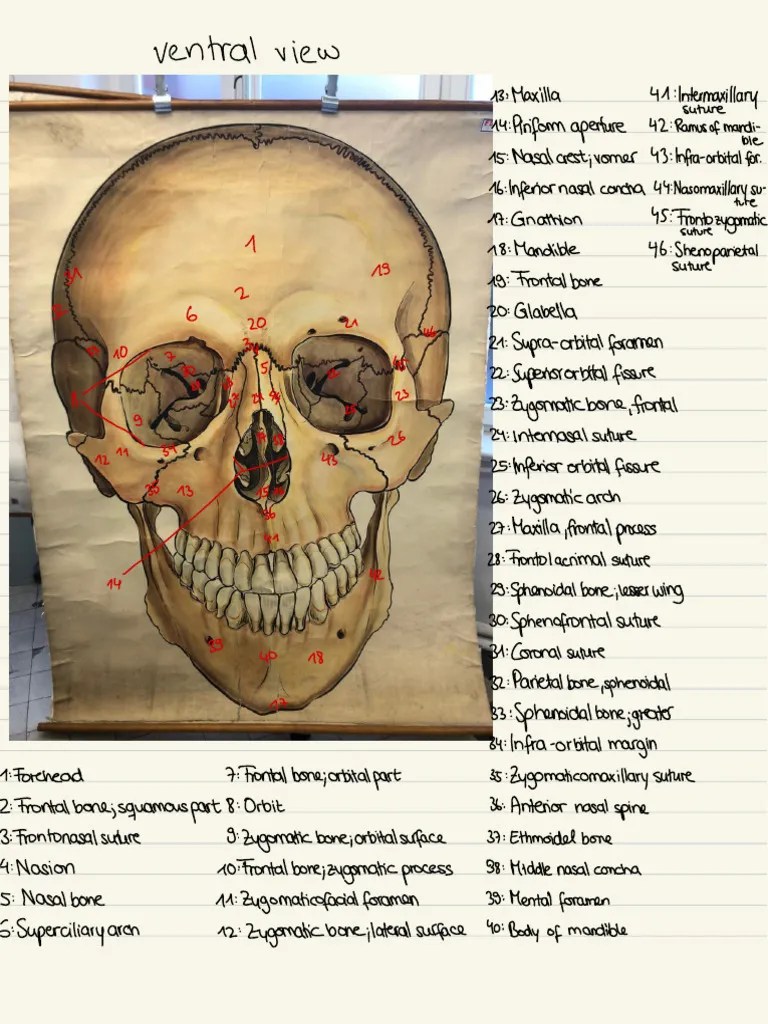 ventral view
13: Maxilla
14: Piriform aperture
15: Nasal crest; vomer
16: Inferior nasal concha
17: Gnathion
18: Mandible
19: Frontal bone
20: Glabella
21: Supra-orbital foramen
22: Superior orbital fissure
23: Zygomatic bone, frontal
24: Internasal suture
25: Inferior orbital fissure
26: Zygomatic arch
27: Maxilla, frontal process
28: Frontolacrimal suture
29: Sphenoidal bone; lesser wing
30: Sphenofrontal suture
31: Coronal suture
32: Parietal bone, sphenoidal
33: Sphenoidal bone; greater
34: Infra-orbital margin
35: Zygomaticomaxillary suture
36: Anterior nasal spine
37: Ethmoidel bone
38: Middle nasal concha
39: Mental foramen
40: Body of mandible
41: Intermaxillary
suture
42: Ramus of mandi-
ble
43: Infra-orbital for.
44: Nasomaxillary su-
ture
45: Frontozygomatic
suture
46: Shenoparietal
suture
1: Forehead
2: Frontal bone; squamous part
3: Frontonasal suture
4: Nasion
5: Nasal bone
6: Superciliary arch
7: Frontal bone; orbital part
8: Orbit
9: Zygomatic bone; orbital surface
10: Frontal bone; zygomatic process
11: Zygomaticofacial foramen
12: Zygomatic bone; lateral surface
1
19
31
2
6
20
21
46
10
7
3
5
45
23
9
26
12
11
43
13
35
15
36
41
14
42
39
40
18
17